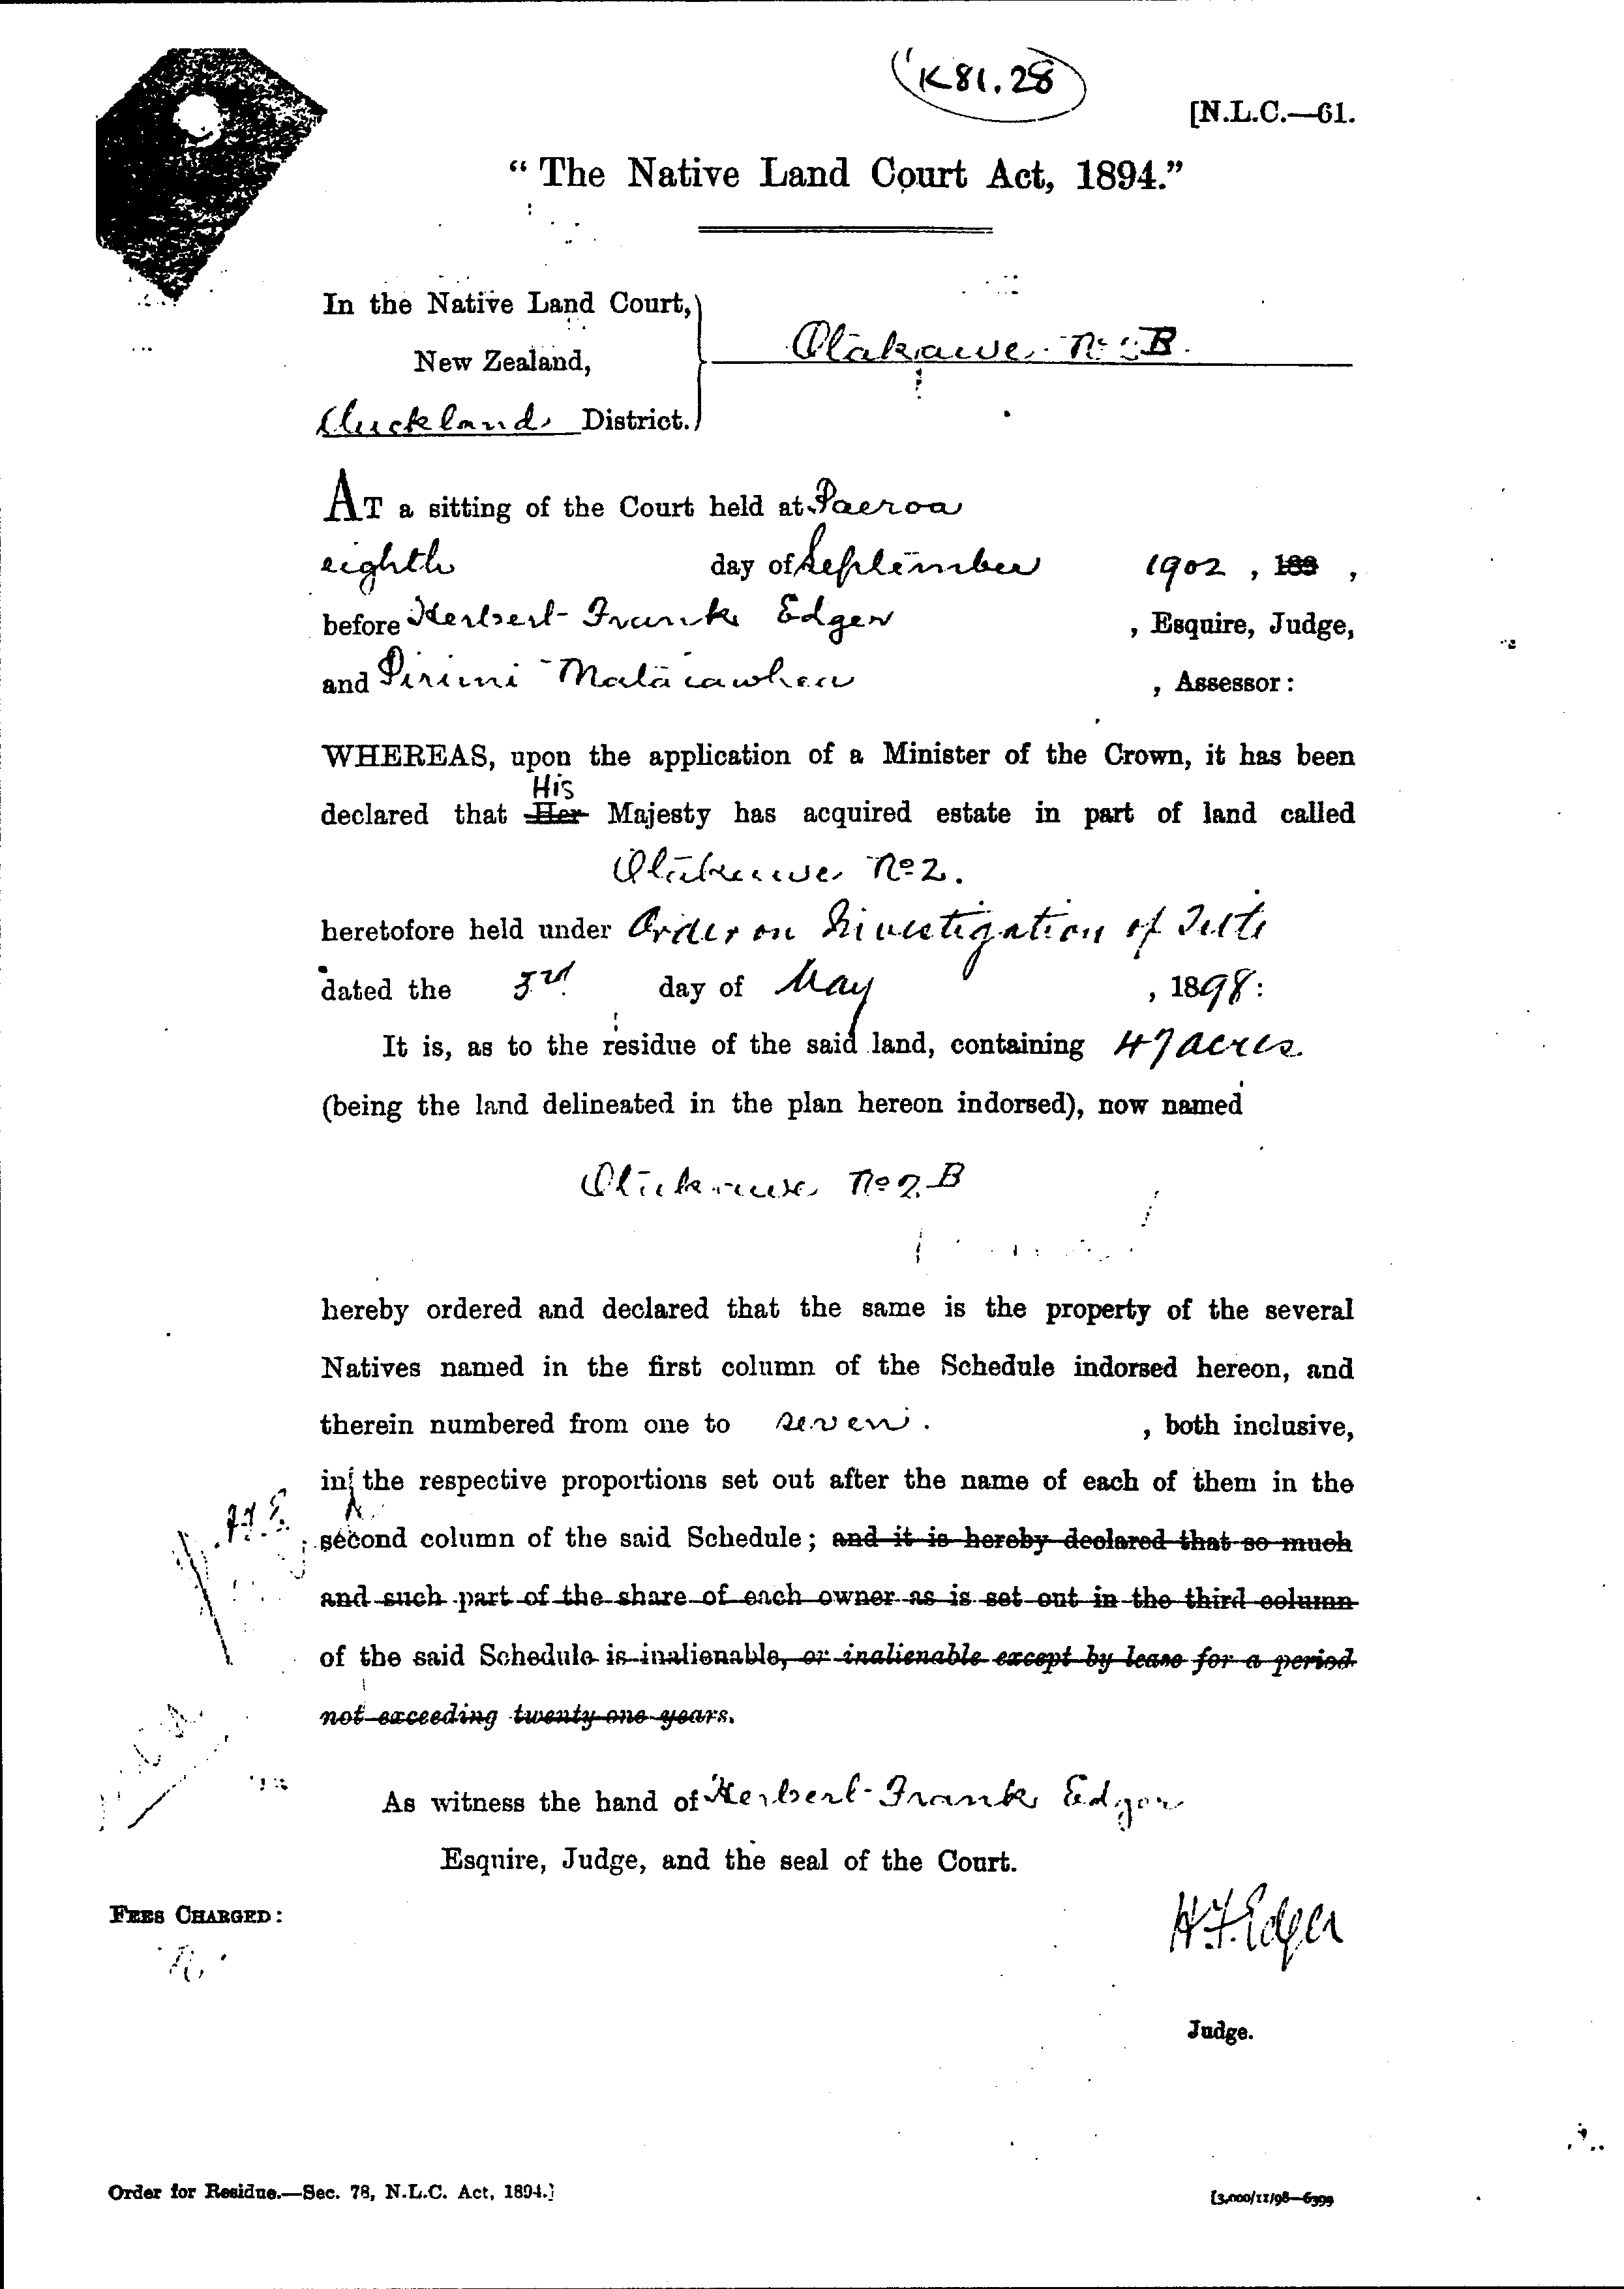 K81.28
[N.L.C.—61.
“The Native Land Court Act, 1894.”
In the Native Land Court,
New Zealand,
Auckland District.
Otakawe No 2B.
AT a sitting of the Court held at Paeroa
eighth day of September 1902 , 189 ,
before Herbert Frank Edger , Esquire, Judge,
and Pirimi Mataiawhea , Assessor:
WHEREAS, upon the application of a Minister of the Crown, it has been
His
declared that Her Majesty has acquired estate in part of land called
Otakawe No 2.
heretofore held under Order on Investigation of Title
dated the 3rd day of May , 1898:
It is, as to the residue of the said land, containing 47 acres
(being the land delineated in the plan hereon indorsed), now named
Otakawe No 2B
hereby ordered and declared that the same is the property of the several
Natives named in the first column of the Schedule indorsed hereon, and
therein numbered from one to seven. , both inclusive,
in the respective proportions set out after the name of each of them in the
second column of the said Schedule; and it is hereby declared that so much
and such part of the share of each owner as is set out in the third column
of the said Schedule is inalienable, or inalienable except by lease for a period
not exceeding twenty-one years.
As witness the hand of Herbert Frank Edger
Esquire, Judge, and the seal of the Court.
FEES CHARGED:
H.F. Edger
Judge.
Order for Residue.—Sec. 78, N.L.C. Act, 1894.]
[3,000/11/98—6399